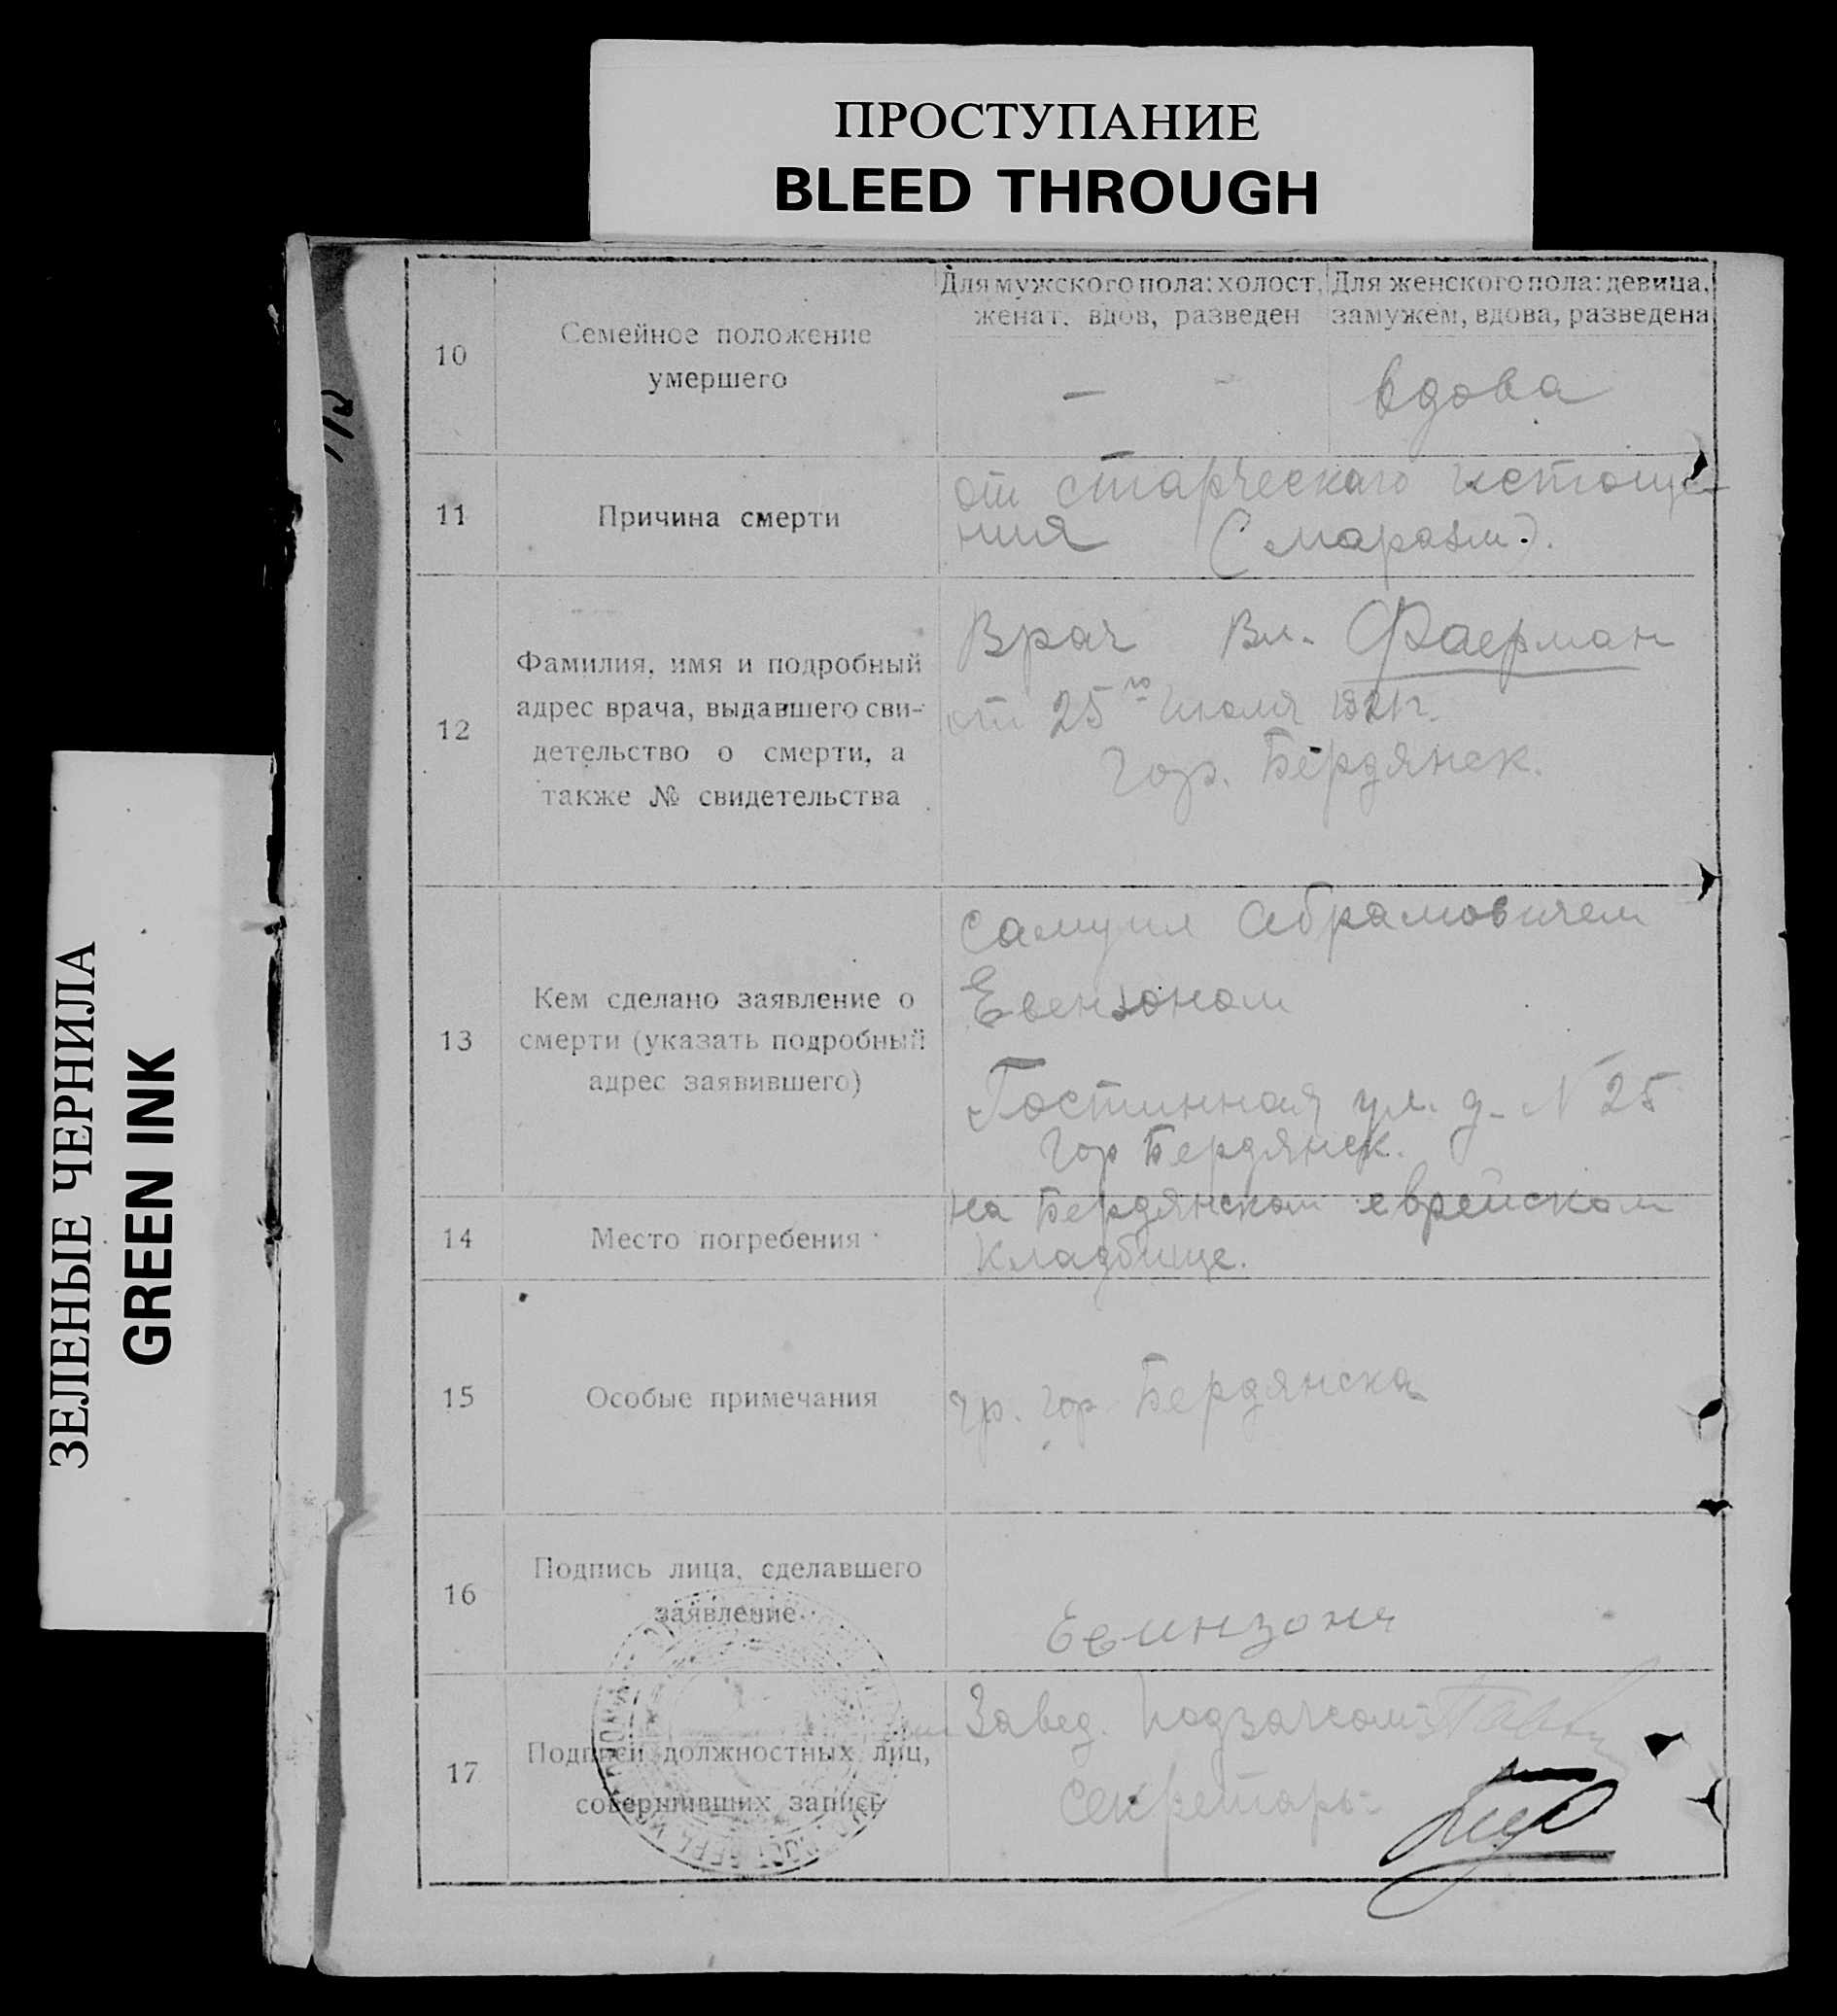 ПРОСТУПАНИЕ
BLEED THROUGH
ЗЕЛЕНЫЕ ЧЕРНИЛА
GREEN INK
10
Семейное положение
умершего
Для мужского пола: холост,
женат, вдов, разведен
Для женского пола: девица,
замужем, вдова, разведена
—
вдова
11
Причина смерти
от старческаго истоще-
ния (маразм).
12
Фамилия, имя и подробный
адрес врача, выдавшего сви-
детельство о смерти, а
также № свидетельства
Врач Вл. Фаерман
от 25го Июля 1921г.
гор. Бердянск.
13
Кем сделано заявление о
смерти (указать подробный
адрес заявившего)
Самуил Абрамовичем
Евензоном
Гостинная ул. д. N 25
гор Бердянск.
14
Место погребения
на Бердянском еврейском
кладбище.
15
Особые примечания
гр. гор Бердянска
16
Подпись лица, сделавшего
заявление
Евинзонъ
17
Подписи должностных лиц,
совершивших запись
Завед. Подзагсом
Секретарь: